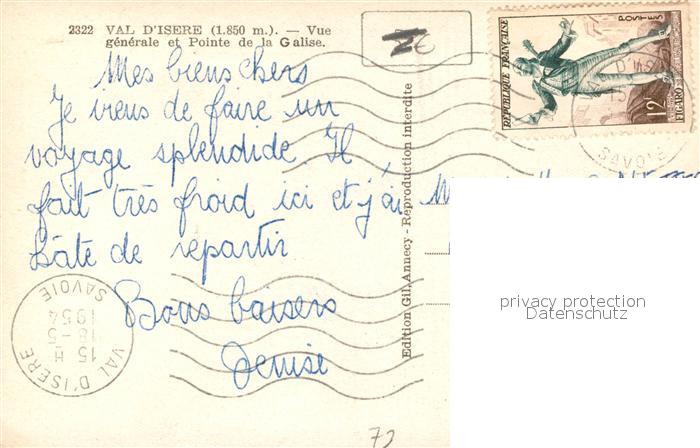 2322 VAL D'ISERE (1.850 m.). — Vue
générale et Pointe de la Galise.
2€
Mes biens chers
Je viens de faire un
voyage splendide. Il
fait très froid ici et j'ai
hâte de repartir
Bons baisers
Denise
Edition Gil, Annecy - Reproduction interdite
REPUBLIQUE FRANÇAISE
POSTES
12F
FIGARO
VAL D'ISERE
SAVOIE
VAL D'ISERE
15 H
18-5
1954
SAVOIE
privacy protection
Datenschutz
72